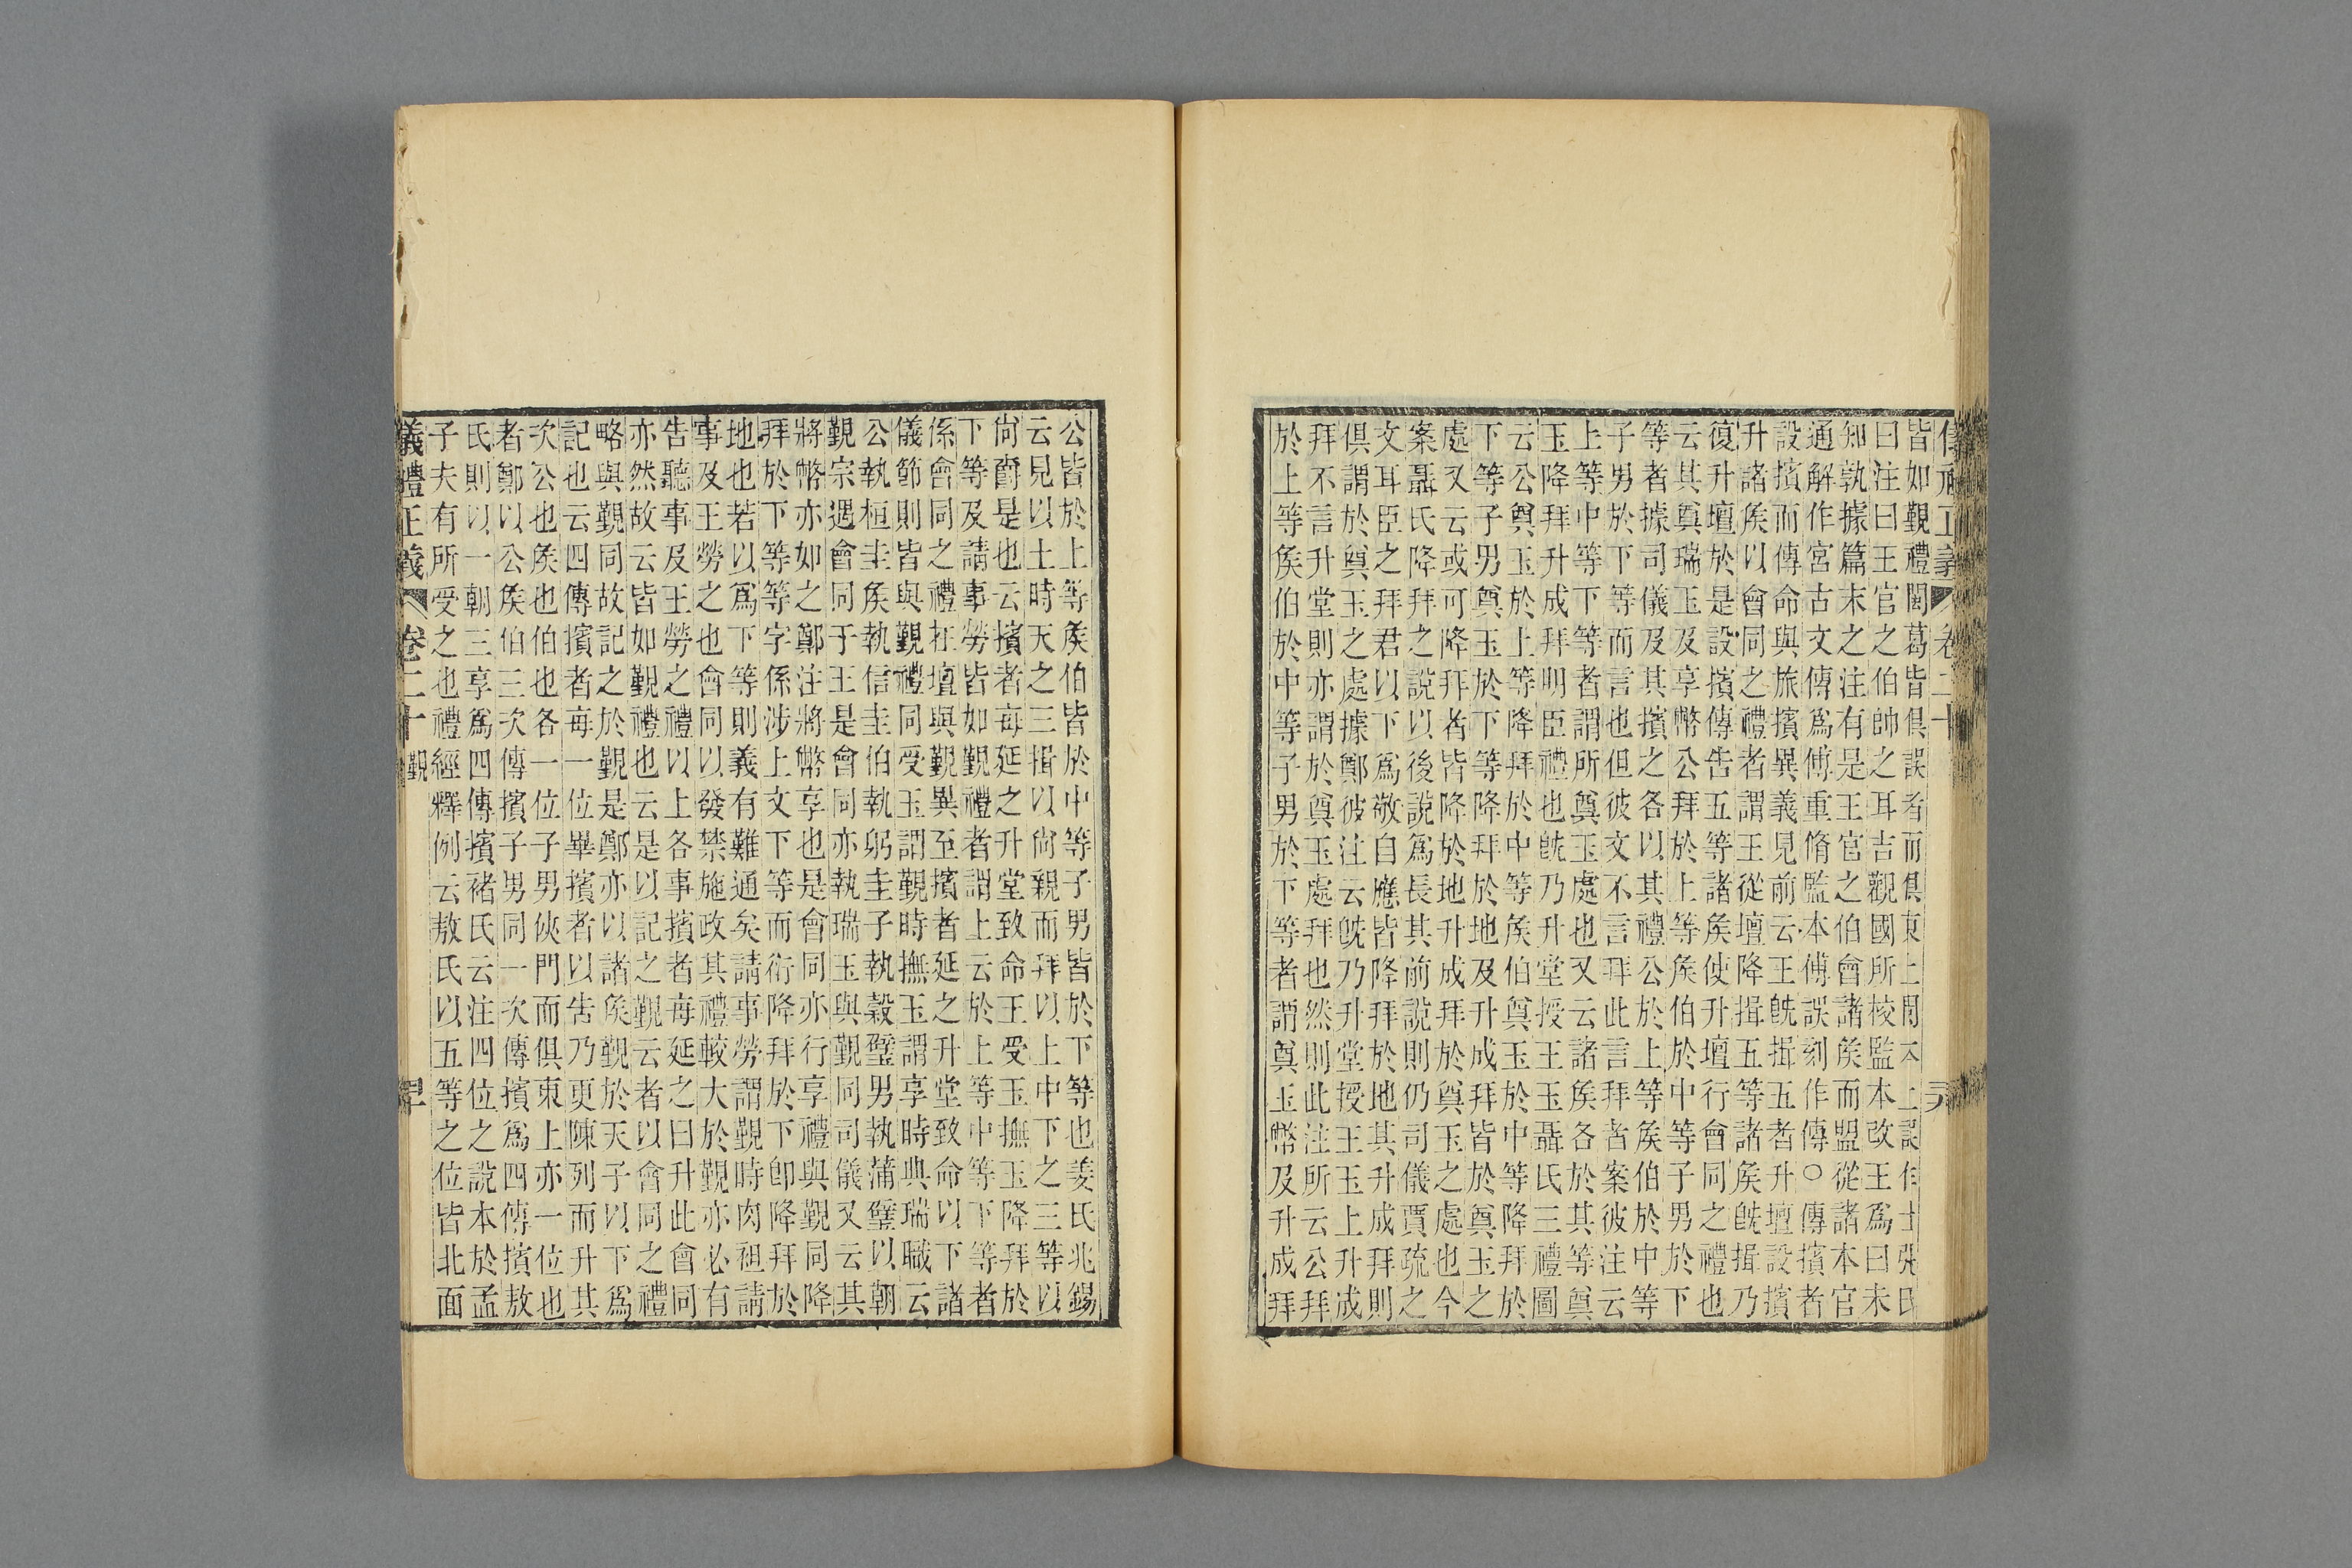 皆如覲禮閩葛皆俱誤者而俱東上閩本上誤作士張氏
曰注曰王官之伯帥之耳吉觀國所校監本改王爲曰未
知孰據篇末之注有是王官之伯會諸矦而盟從諸本官
通解作宮古文傳爲傅重脩監本傅誤刻作傳○傳擯者
設擯而傳命與旅擯異義見前云王旣揖五者升壇設擯
升諸矦以會同之禮者謂王從壇降揖五等諸矦旣揖乃
復升壇於是設擯傳告五等諸矦使升壇行會同之禮也
云其奠瑞玉及享幣公拜於上等矦伯於中等子男於下
等者據司儀及其擯之各以其禮公於上等矦伯於中等
子男於下等而言也但彼文不言拜此言拜者案彼注云
上等中等下等者謂所奠玉處也又云諸矦各於其等奠
玉降拜升成拜明臣禮也旣乃升堂授王玉聶氏三禮圖
云公奠玉於上等降拜於中等矦伯奠玉於中等降拜於
下等子男奠玉於下等降拜於地及升成拜皆於奠玉之
處又云或可降拜者皆降於地升成拜於奠玉之處也今
案聶氏降拜之說以後說爲長其前說則仍司儀賈疏之
文耳臣之拜君以下爲敬自應皆降拜於地其升成拜則
俱謂於奠玉之處據鄭彼注云旣乃升堂授王玉上升成
拜不言升堂則亦謂於奠玉處拜也然則此注所云公拜
於上等矦伯於中等子男於下等者謂奠玉幣及升成拜
公皆於上等矦伯皆於中等子男皆於下等也姜氏兆錫
云見以土時天之三揖以尙親而拜以上中下之三等以
尙爵是也云擯者每延之升堂致命王受玉撫玉降拜於
下等及請事勞皆如覲禮者謂上云於上等中等下等者
係會同之禮在壇與覲異至擯者延之升堂致命以下諸
儀節則皆與覲禮同受玉謂覲時撫玉謂享時典瑞職云
公執桓圭矦執信圭伯執躬圭子執穀璧男執蒲璧以朝
覲宗遇會同于王是會同亦執瑞玉與覲同司儀又云其
將幣亦如之鄭注將幣享也是會同亦行享禮與覲同降
拜於下等等字係涉上文下等而衍降拜於下卽降拜於
地也若以爲下等則義有難通矣請事勞謂覲時肉袒請
事及王勞之也會同以發禁施政其禮較大於覲亦必有
告聽事及王勞之禮以上各事擯者每延之曰升此會同
亦然故云皆如覲禮也云是以記之覲云者以會同之禮
略與覲同故記之於覲是鄭亦以諸矦覲於天子以下爲
記也云四傳擯者每一位畢擯者以告乃更陳列而升其
次公也矦也伯也各一位子男俠門而俱東上亦一位也
者鄭以公矦伯三次傳擯子男同一次傳擯爲四傳擯敖
氏則以一朝三享爲四傳擯褚氏云注四位之說本於孟
子夫有所受之也禮經釋例云敖氏以五等之位皆北面
儀禮正義 卷二十 覲